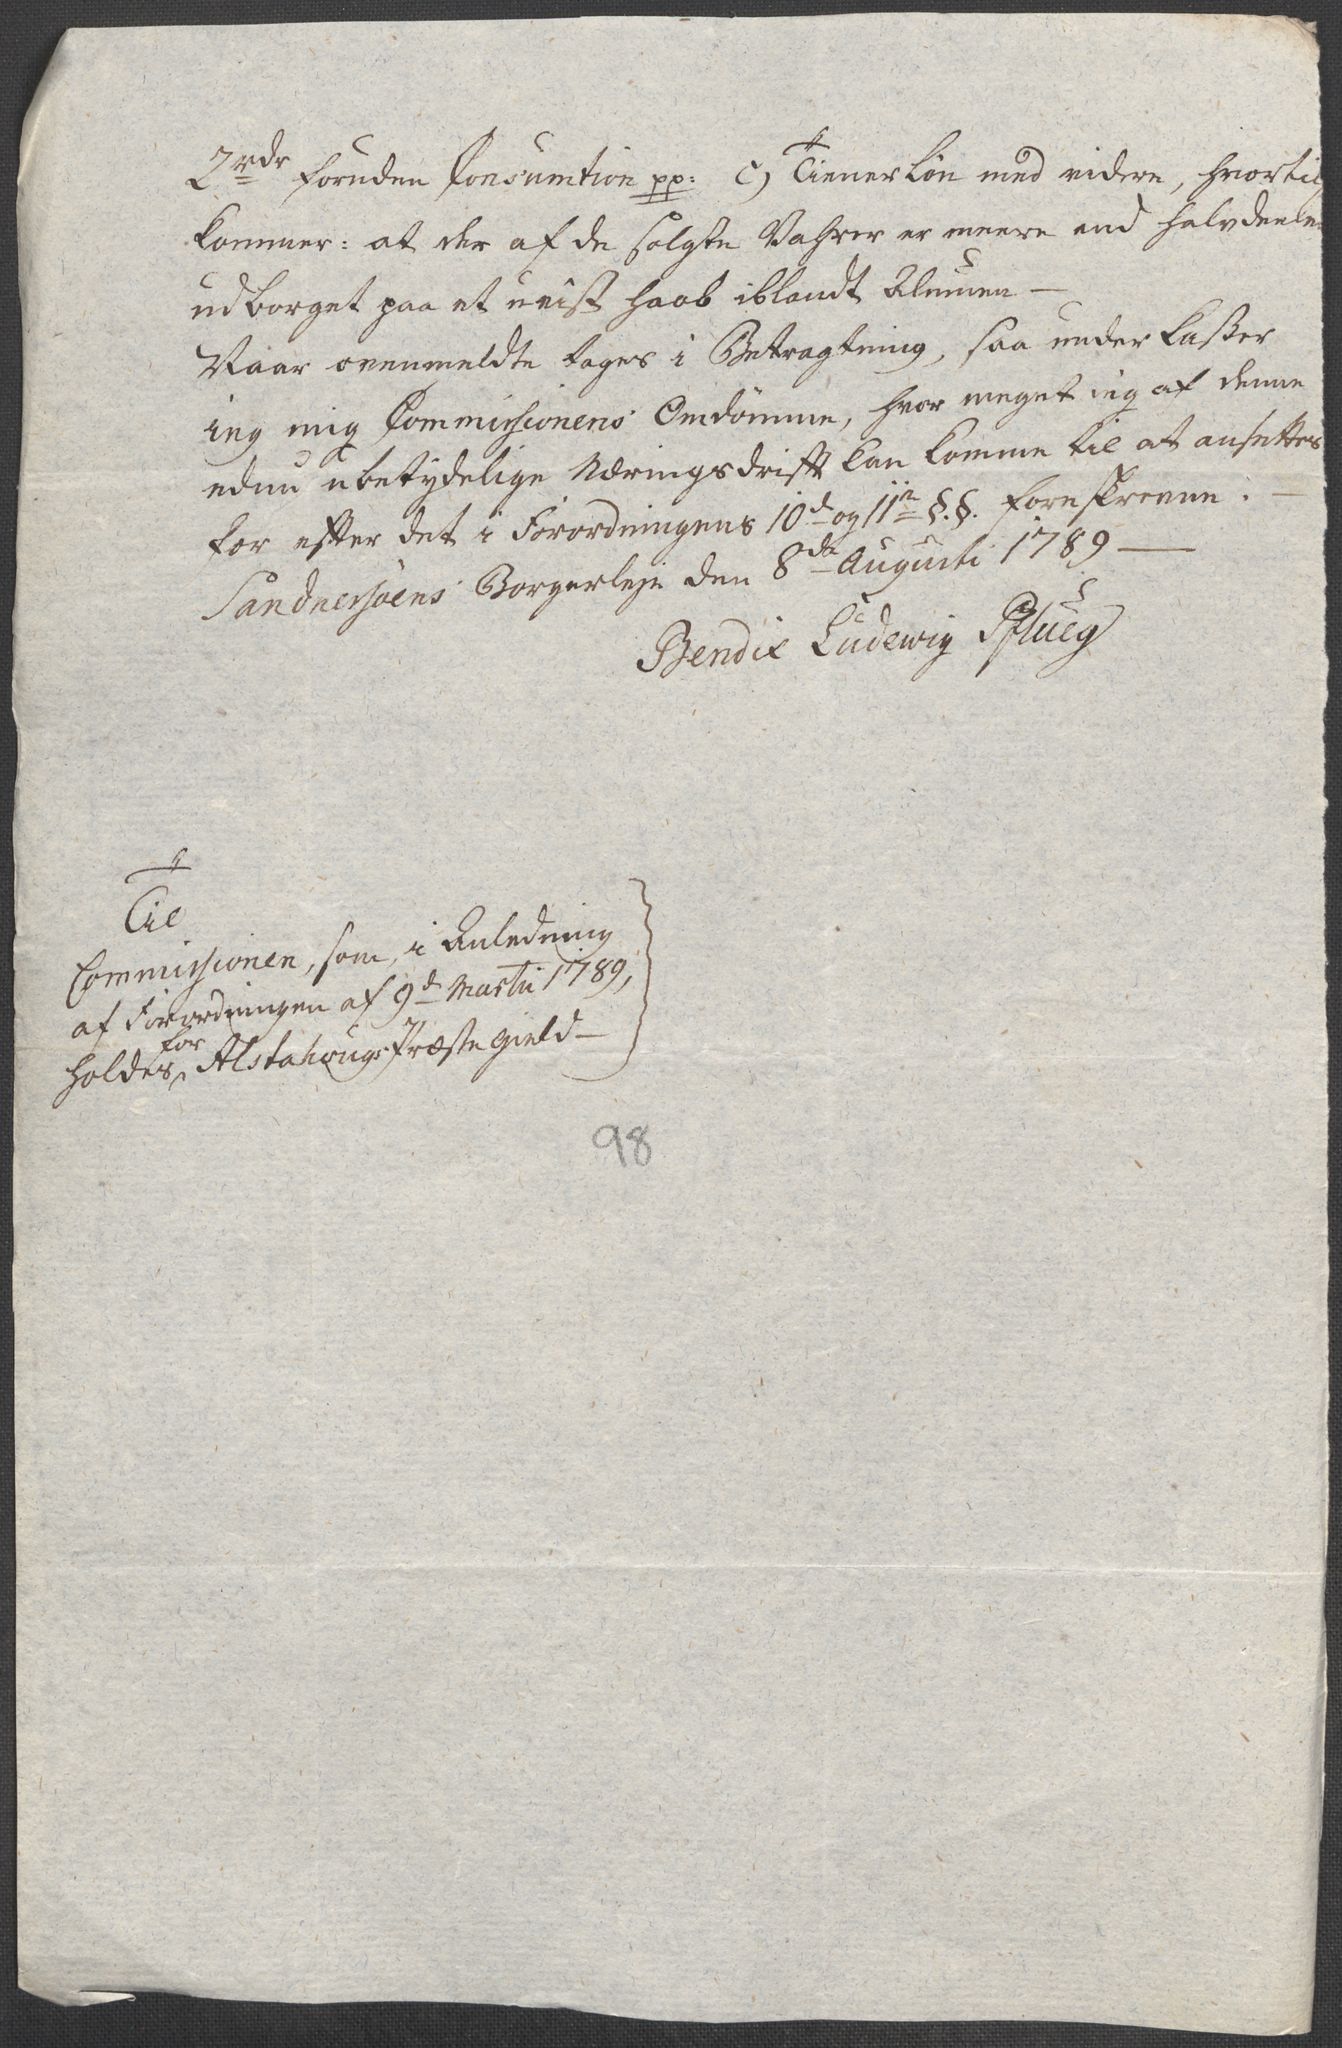 2 rdr foruden Consumtion pp: C) Tienerløn med videre, hvortil
kommer: at der af de solgte Vahrer er meere end halvdeelen
udborget paa et uvist haab iblandt Almuen —
Naar ovenmeldte tages i Betragtning, saa underkaster
ieg mig Commissionens Omdömme, hvor meget ieg af denne
ednu ubetydelige Næringsdrift kan komme til at ansettes
for efter det i Forordningens 10d og 11te §.§. foreskrevne. —
Sandnersøens Borgerleje den 8de Augusti 1789 —
Bendix Ludewig Pflueg
Til
Commissionen, som, i Anledning
af Forordningen af 9d Martii 1789,
holdes for Alstahougs Præstegield —
98